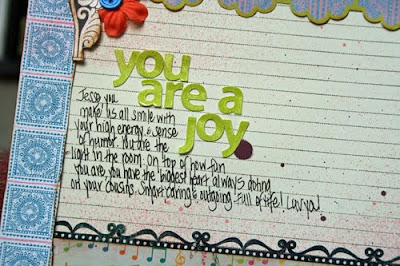 you
are a
joy
Jesse you
make us all smile with
your high energy & sense
of humor. You are the
light in the room. on top of how fun
you are, you have the biggest heart always doting
on your cousins. Smart caring & outgoing. Full of life! Luv ya!